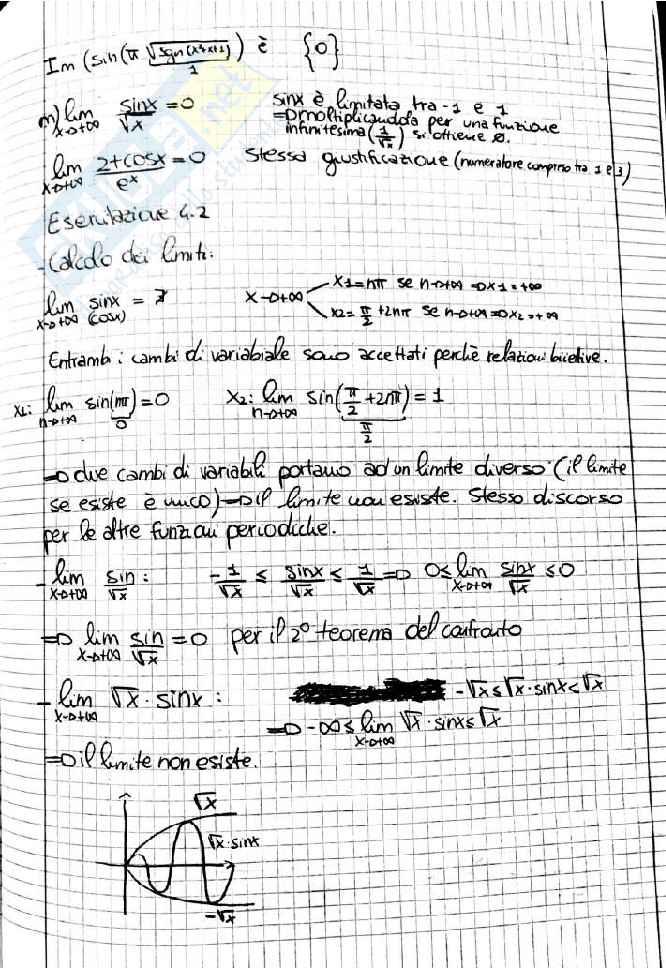 Im (sin(π √sgn(x²+x+1))) è {0}
1
m) lim x→+∞ sinx/√x = 0 sinx è limitata tra -1 e 1
⇒ moltiplicandola per una funzione
infinitesima (1/√x) si ottiene 0.
lim x→+∞ 2+cosx/eˣ = 0 Stessa giustificazione (numeratore compreso tra 1 e 3)
Esercitazione 4.2
- Calcolo dei limiti:
lim x→+∞ sinx (cosx) = ? x→+∞ x1=nπ se n→+∞ ⇒ x1=+∞
x2=π/2+2nπ se n→+∞ ⇒ x2=+∞
Entrambi i cambi di variabiale sono accettati perchè relazioni biiettive.
x1: lim n→+∞ sin(nπ) = 0 x2: lim n→+∞ sin(π/2+2nπ) = 1
0 π/2
⇒ due cambi di variabili portano ad un limite diverso (il limite
se esiste è unico) ⇒ il limite non esiste. Stesso discorso
per le altre funzioni periodiche.
- lim x→+∞ sin/√x : -1/√x ≤ sinx/√x ≤ 1/√x ⇒ 0 ≤ lim x→+∞ sinx/√x ≤ 0
⇒ lim x→+∞ sin/√x = 0 per il 2° teorema del confronto
- lim x→+∞ √x · sinx : -√x ≤ √x · sinx < √x
⇒ -∞ ≤ lim x→+∞ √x · sinx ≤ √x
⇒ il limite non esiste.
√x
√x · sinx
-√x